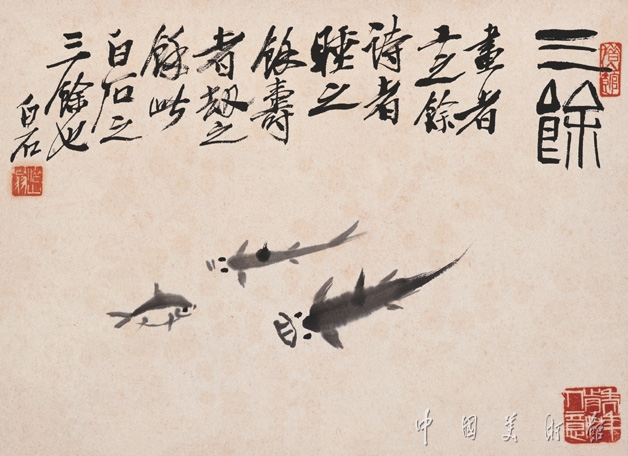 三餘
畫者
工之餘
詩者
睡之
餘壽
者劫之
餘此
白石之
三餘也
白石
中國美術館